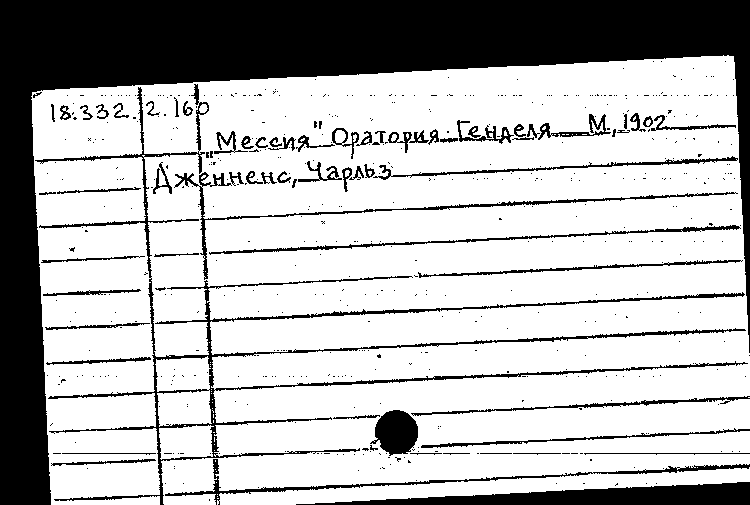 18.332.2.160
"Мессия" Оратория Генделя М, 1902
Дженненс, Чарльз